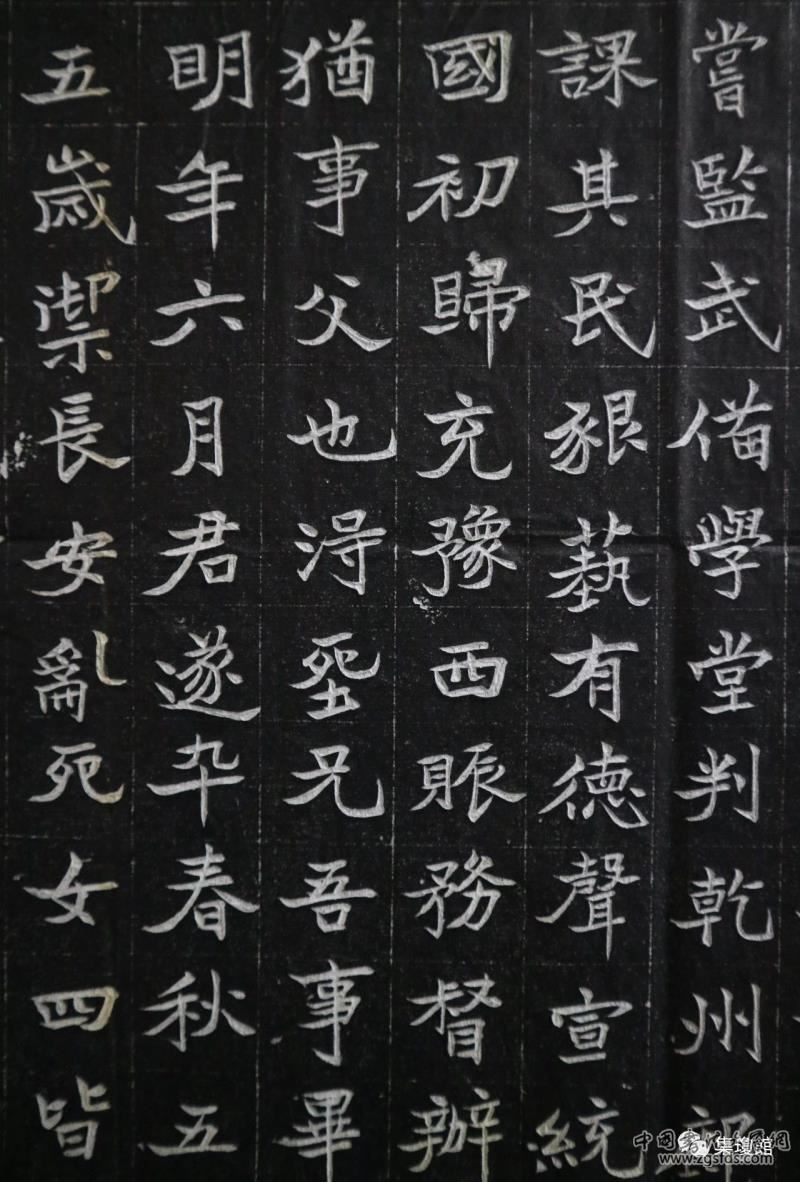 嘗監武俻學堂判乾州
課其民豤藝有德聲宣統
國初歸充豫西賑務督辦
猶事父也淂塟兄吾事畢
明年六月君遂卆春秋五
五歲禦長安亂死女四皆
中國書法
集瓊館
www.zgsfds.com